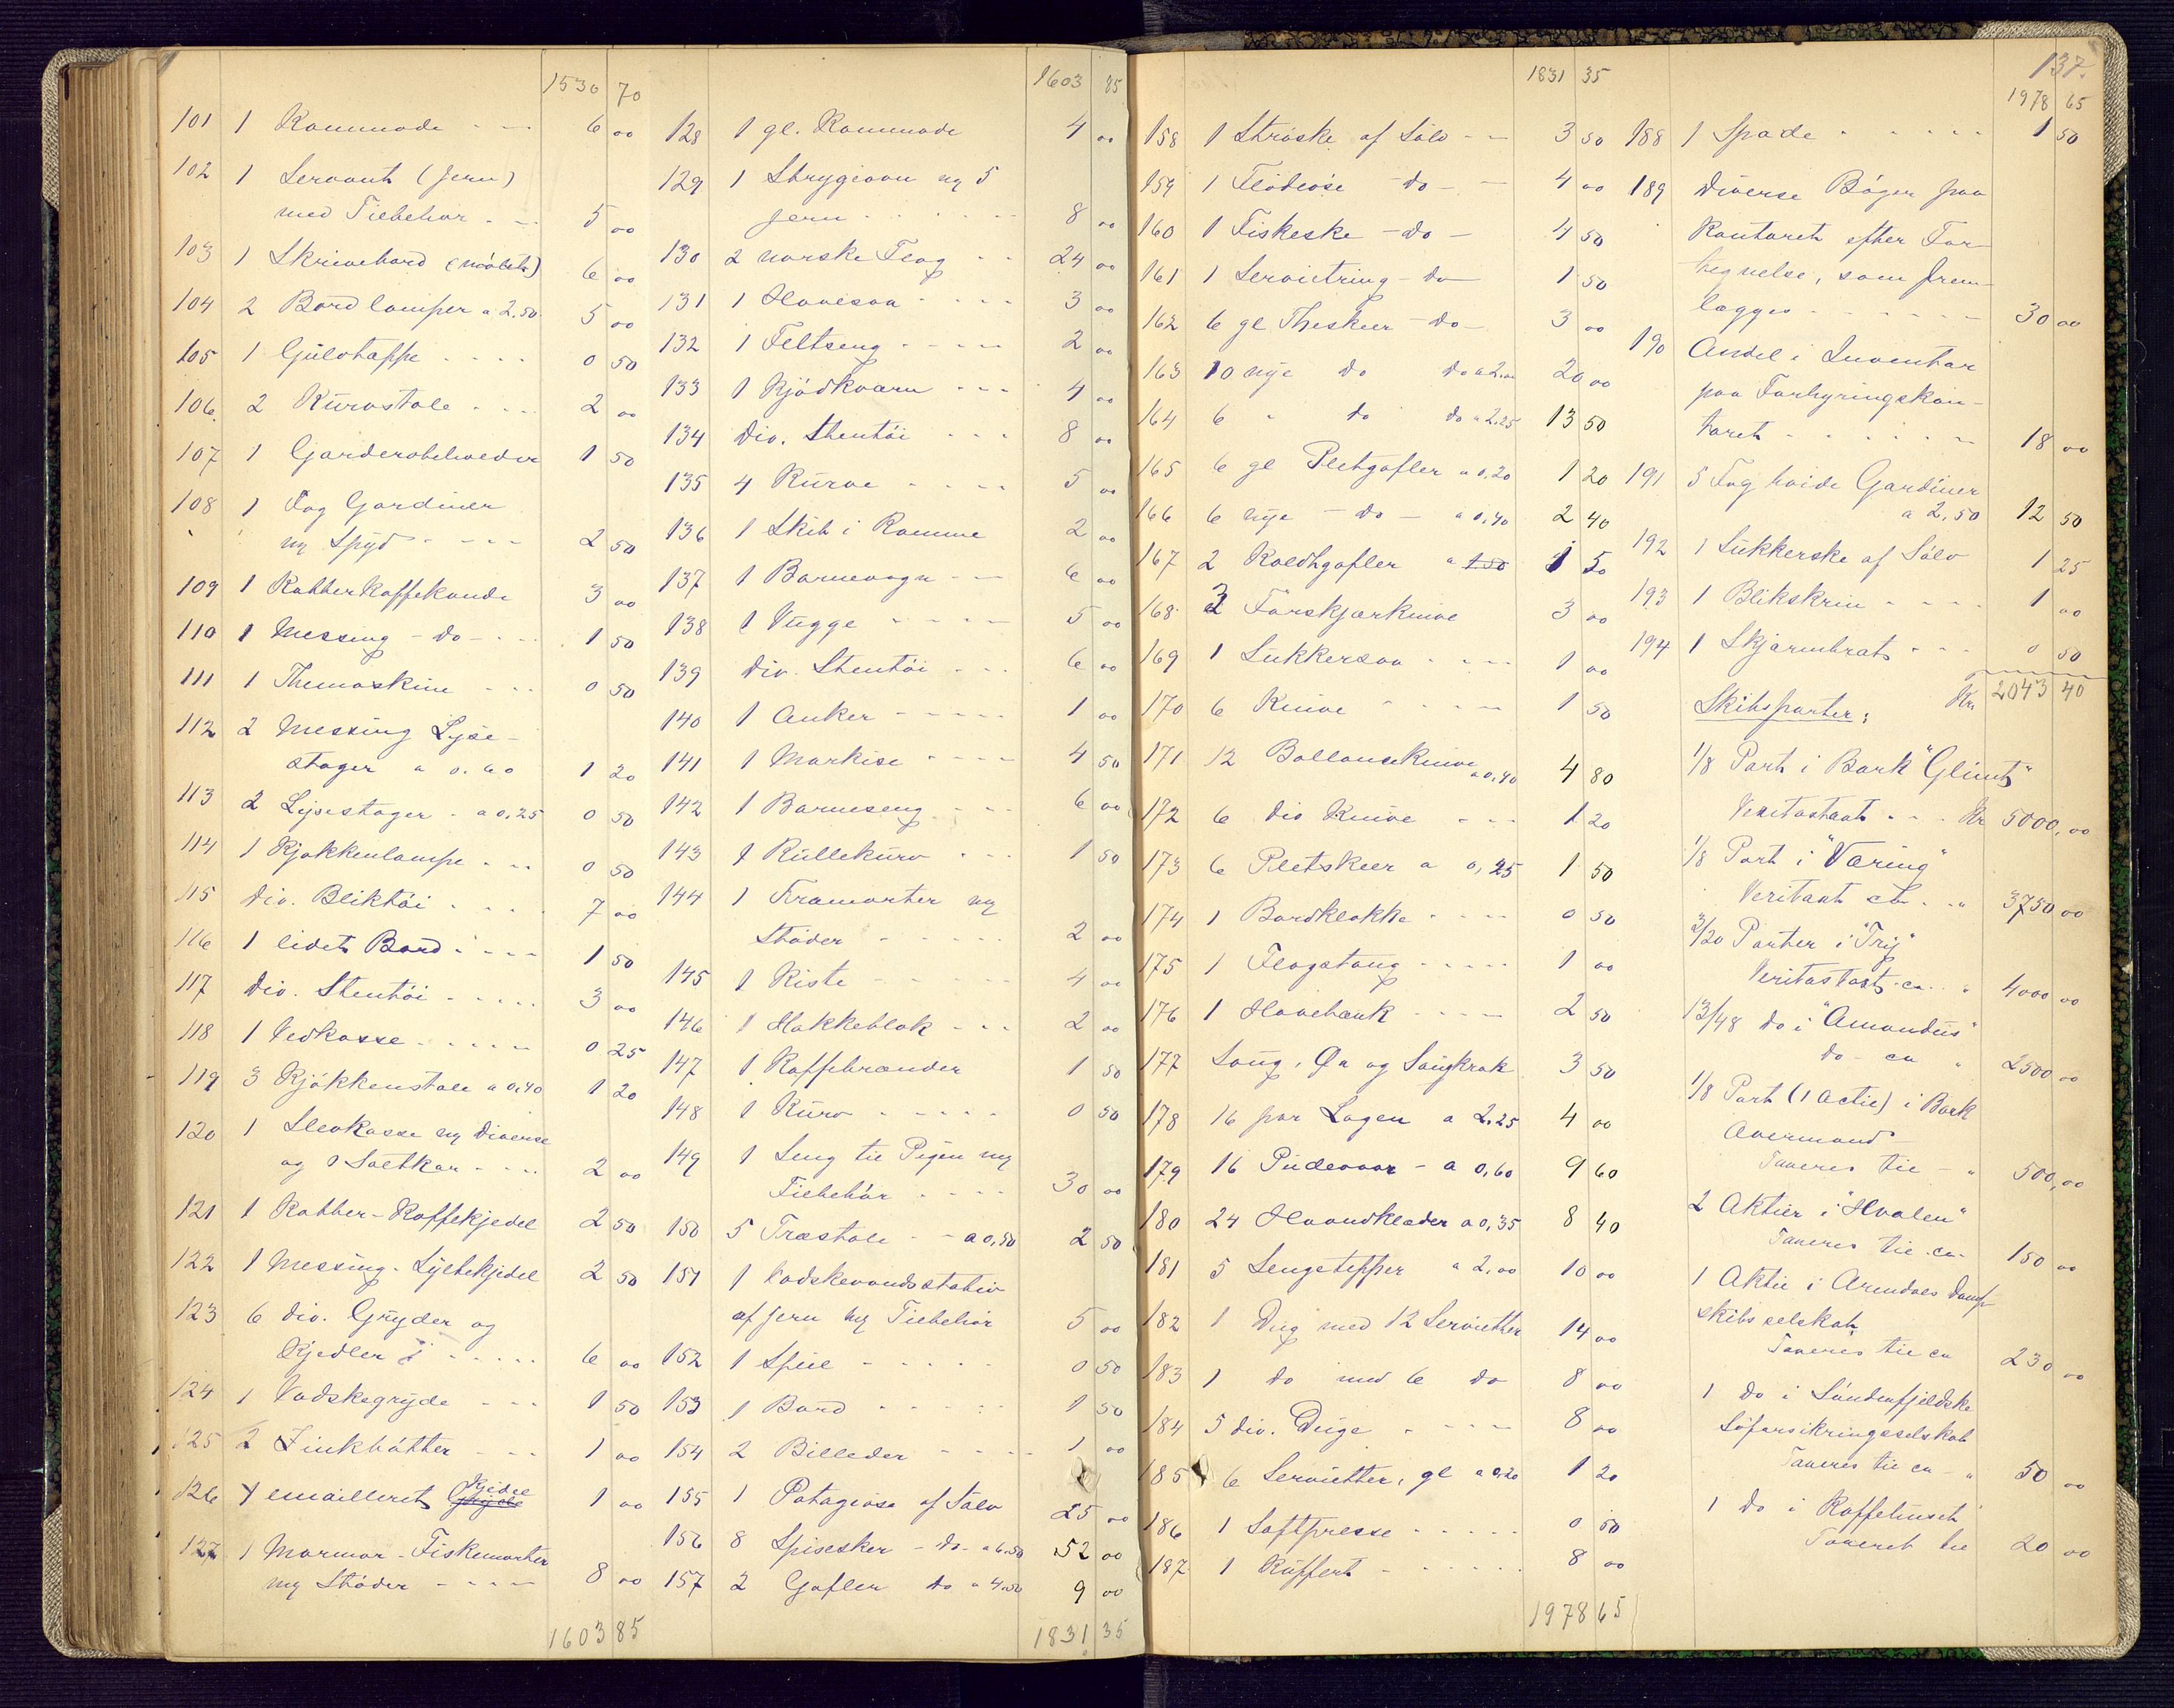 1530 70
101 1 Kommode - - - 6 00
102 1 Servant (Jern)
med Tilbehør - - 5 00
103 1 Skrivebord (malet) 6 00
104 2 Bordlamper a 2.50 5 00
105 1 Gulvtæppe - - - - 0 50
106 2 Kurvstole - - - 2 00
107 1 Garderobeholder 1 50
108 1 Fag Gardiner
og Spyd - - - - 2 50
109 1 Kobberkaffekande 3 00
110 1 Messing - do - - - 1 50
111 1 Themaskine - - - 0 50
112 2 Messing Lyse-
stager a 0.60 1 20
113 2 Lysestager - a 0.25 0 50
114 1 Kjøkkenlampe - - - 0 50
115 Div. Bliktøi - - - - 7 00
116 1 lidet Bord - - - - 1 50
117 Div. Stentøi - - - - - 3 00
118 1 Vedkasse - - - - - 0 25
119 3 Kjøkkenstole a 0.40 1 20
120 1 Slevkasse og Diverse
og 1 Saltkar - - - - 2 00
121 1 Kobber-Kaffekjedel 2 50
122 1 Messing-Syltekjedel 2 50
123 6 div. Gryder og
Kjedler - - - - - 6 00
124 1 Vadskegryde - - - 1 50
125 2 Zinkbøtter - - - 1 00
126 1 emailleret Kjedel 1 00
127 1 Marmor-Fiskemorter
og Støder - - - - 8 00
1603 85
1603 85
128 1 gl. Kommode 4 00
129 1 Strygeovn og 5
Jern - - - - - - 8 00
130 2 norske Flag - - 24 00
131 1 Havesax - - - - 3 00
132 1 Feltseng - - - - - 2 00
133 1 Kjødkværn - - - 4 00
134 Div. Stentøi - - - 8 00
135 4 Kurve - - - - - 5 00
136 1 Skib i Ramme 2 00
137 1 Barnevogn - - - 6 00
138 1 Vugge - - - - - 5 00
139 Div. Stentøi - - - 6 00
140 1 Anker - - - - - 1 00
141 1 Markise - - - - 4 50
142 1 Barneseng - - - 6 00
143 1 Rullekurv - - - 1 50
144 1 Træmorter og
Støder - - - - - 2 00
145 1 Kiste - - - - - 4 00
146 1 Hakkeblok - - - 2 00
147 1 Kaffebrænder 1 50
148 1 Kurv - - - - - 0 50
149 1 Seng til Pigen og
Tilbehør - - - - 30 00
150 5 Træstole - - a 0,50 2 50
151 1 Vadskevandsstativ
af Jern og Tilbehør 5 00
152 1 Speil - - - - - 0 50
153 1 Bord - - - - - 1 50
154 2 Billeder - - - - - 1 00
155 1 Potageøse af Sølv 25 00
156 8 Spiseskeer - do - a 6.50 52 00
157 2 Gafler do a 4.50 9 00
1831 35
1831 35
158 1 Strøske af Sølv - - 3 50
159 1 Flødeøse - do - - 4 00
160 1 Fiskeske - do - 4 50
161 1 Servietring - do 1 50
162 6 gl Theskeer - do - 3 00
163 10 nye do do a 2.00 20 00
164 6 " do do a 2.25 13 50
165 6 gl Pletgafler a 0,20 1 20
166 6 nye - do - a 0,40 2 40
167 2 Koldtgafler a 1.50 1 50
168 3 Forskjærknive 3 00
169 1 Sukkersax - - - - 1 00
170 6 Knive - - - - 1 50
171 12 Ballanceknive a 0,40 4 80
172 6 div Knive - - - 1 20
173 6 Pletskeer a 0,25 1 50
174 1 Bordklokke - - - - 0 50
175 1 Flagstang - - - - - 1 00
176 1 Havebænk - - - - 2 50
177 Saug, Øx og Saugkrak 3 50
178 16 par Lagen a 2,25 4 00
179 16 Pudevaar - a 0,60 9 60
180 24 Haandklæder a 0,35 8 40
181 5 Sengetepper a 2,00 10 00
182 1 Dug med 12 Servietter 14 00
183 1 do med 6 do 8 00
184 5 div. Duge - - - - 8 00
185 6 Servietter, gl a 0,20 1 20
186 1 Saftpresse - - - - - 0 50
187 1 Kuffert - - - - - - 8 00
1978 65
137.
1978 65
188 1 Spade - - - - - - 1 50
189 Diverse Bøger paa
Kontoret efter For-
tegnelse, som frem-
lægges - - - - - - - 30 00
190 Andel i Inventar
paa Forhyringskon-
toret - - - - - - - 18 00
191 5 Fag hvide Gardiner
a 2,50 12 50
192 1 Sukkerske af Sølv 1 25
193 1 Blikskrin - - - - 1 00
194 1 Skjærmbræt - - - 0 50
Kr. 2043 40
Skibsparter:
1/8 Part i Bark "Glimt"
Veritastaxt - - - Kr 5000,00
1/8 Part i "Væring"
Veritaxt ca - - " 3750 00
3/20 Parter i "Tryg"
Veritastaxt ca - " 4000 00
13/48 do i "Amandus"
do - ca " 2500 00
1/8 Part (1 Actie) i Bark
Avermund
Taxeres til - " 500,00
2 Aktier i "Hvalen"
Taxeres til ca - 150 00
1 Aktie i Arendals Damp-
skibsselskab
Taxeres til ca 230 00
1 do i Søndenfjeldske
Søforsikringsselskab
Taxeres til ca - " 50 00
1 do i Kaffehuset
Taxeret til 20 00